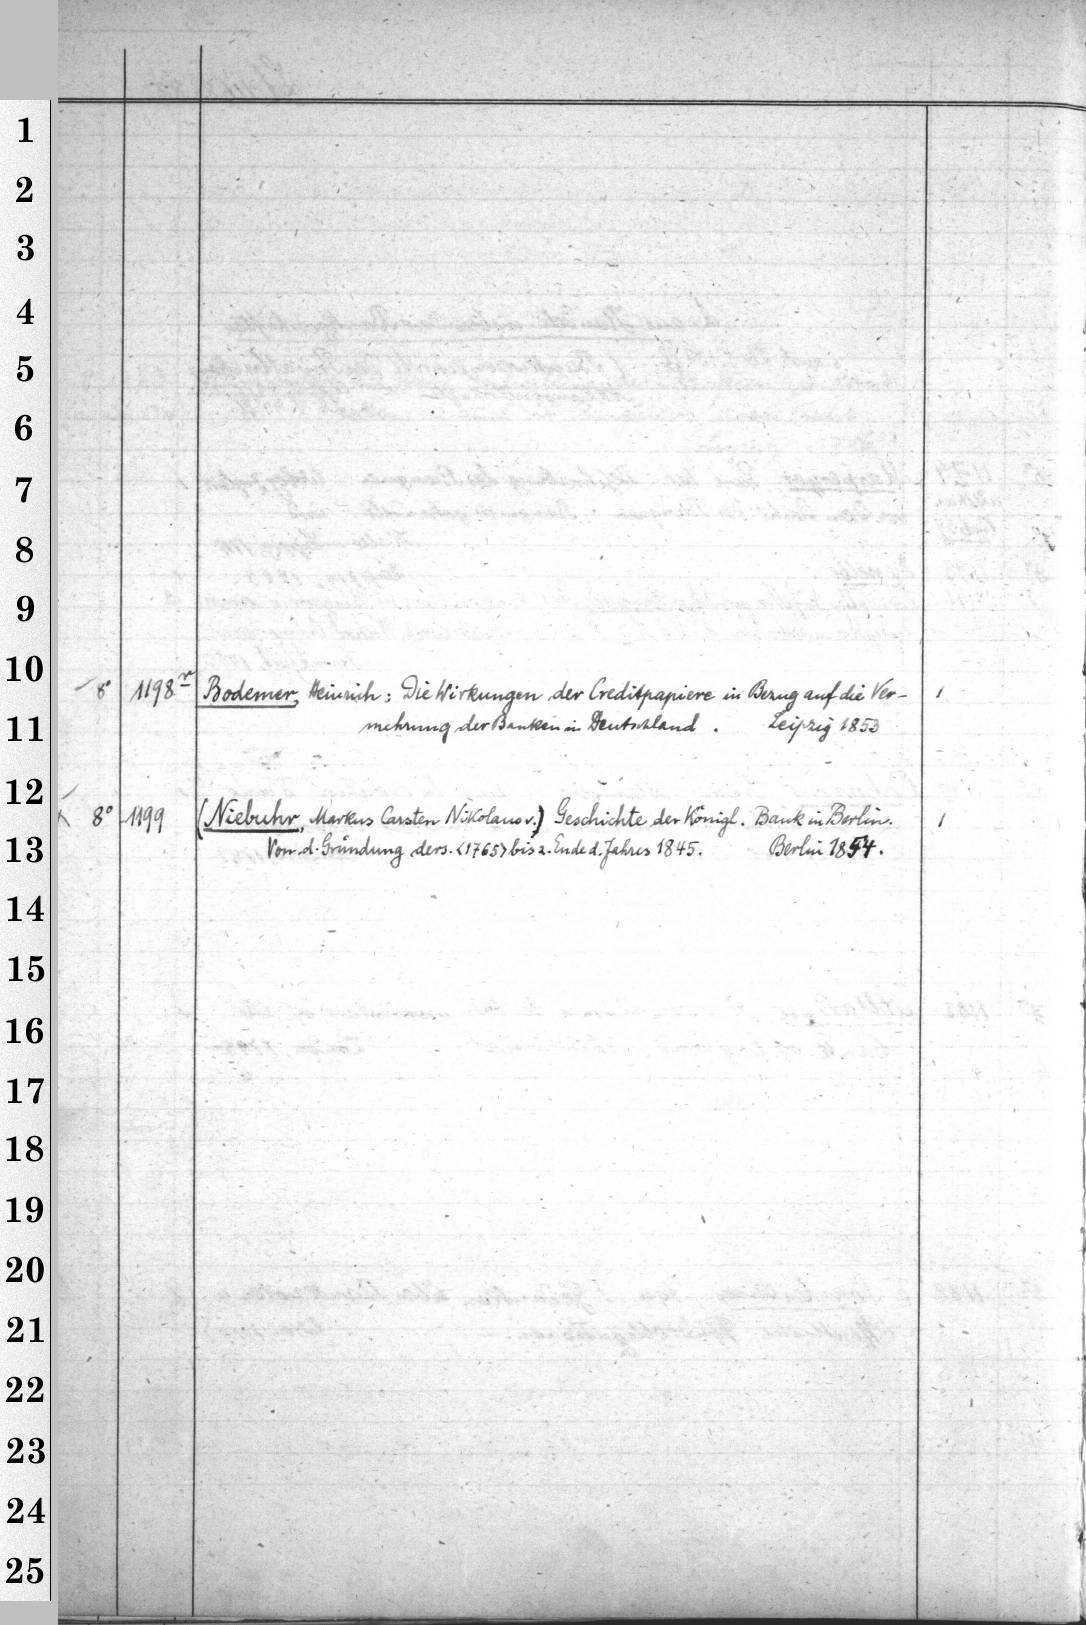 1
2
3
4
5
6
7
8
9
10
8° 1198r Bodemer, Heinrich: Die Wirkungen der Creditpapiere in Bezug auf die Ver- 1
11 mehrung der Banken in Deutschland. Leipzig 1853
12
8° 1199 (Niebuhr, Markus Carsten Nikolaus v.) Geschichte der Königl. Bank in Berlin. 1
13 Von d. Gründung ders. <1765> bis z. Ende d. Jahres 1845. Berlin 1854.
14
15
16
17
18
19
20
21
22
23
24
25